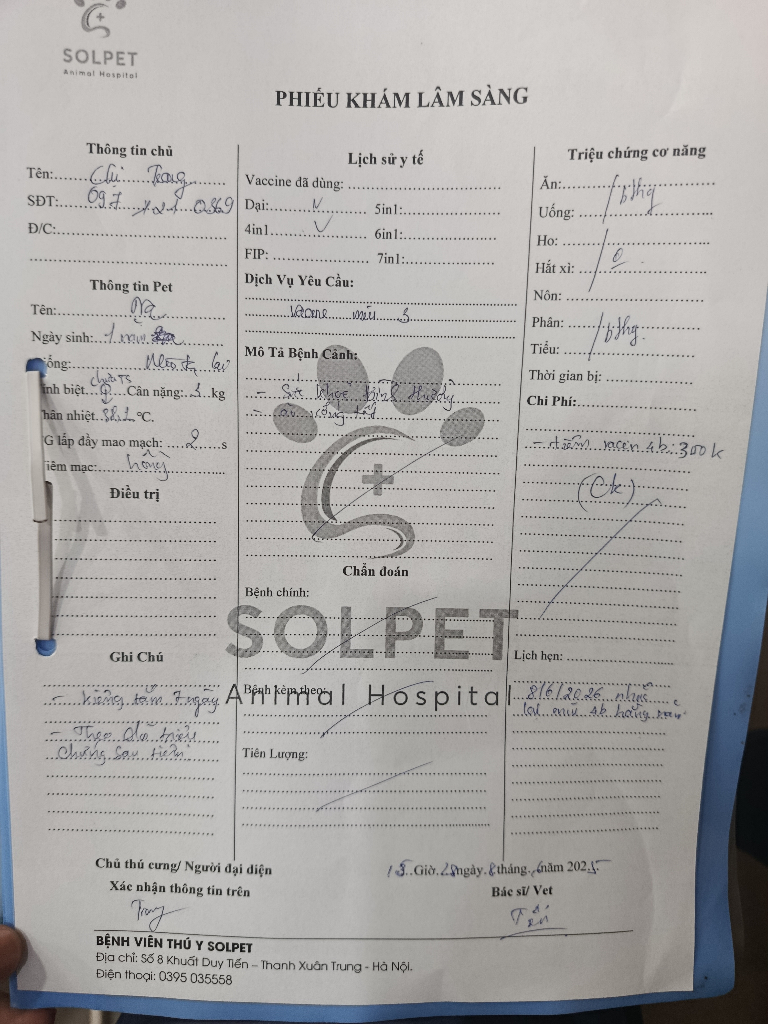 SOLPET
Animal Hospital
PHIẾU KHÁM LÂM SÀNG
Thông tin chủ
Tên: Chị Trang
SĐT: 097 0369
Đ/C:
Thông tin Pet
Tên:
Ngày sinh: 1
Cân nặng: 3 kg
hân nhiệt 38.1 °C.
G lấp đầy mao mạch: 2 s
iêm mạc: hồng
Điều trị
Ghi Chú
- Kiêng tắm 7 ngày
- Theo dõi triệu
chứng sau tiêm
Lịch sử y tế
Vaccine đã dùng:
Dại: 5in1:
4in1 V 6in1:
FIP: 7in1:
Dịch Vụ Yêu Cầu:
vacine mũi 3
Mô Tả Bệnh Cảnh:
- Sk khoẻ bình thường
- ăn uống tốt
Chẩn đoán
Bệnh chính:
SOLPET
Animal Hospital
Bệnh kèm theo:
Tiên Lượng:
Triệu chứng cơ năng
Ăn: bthg
Uống:
Ho: 0
Hắt xì:
Nôn:
Phân: bthg.
Tiểu:
Thời gian bị:
Chi Phí:
- tiêm vacin 4b: 300k
(Ck)
Lịch hẹn:
8/6/2026 nhắc
lại mũi 4b hằng năm
Chủ thú cưng/ Người đại diện
Xác nhận thông tin trên
Trang
15 Giờ, 28 ngày 8 tháng 6 năm 2025
Bác sĩ/ Vet
BỆNH VIÊN THÚ Y SOLPET
Địa chỉ: Số 8 Khuất Duy Tiến – Thanh Xuân Trung - Hà Nội.
Điện thoại: 0395 035558